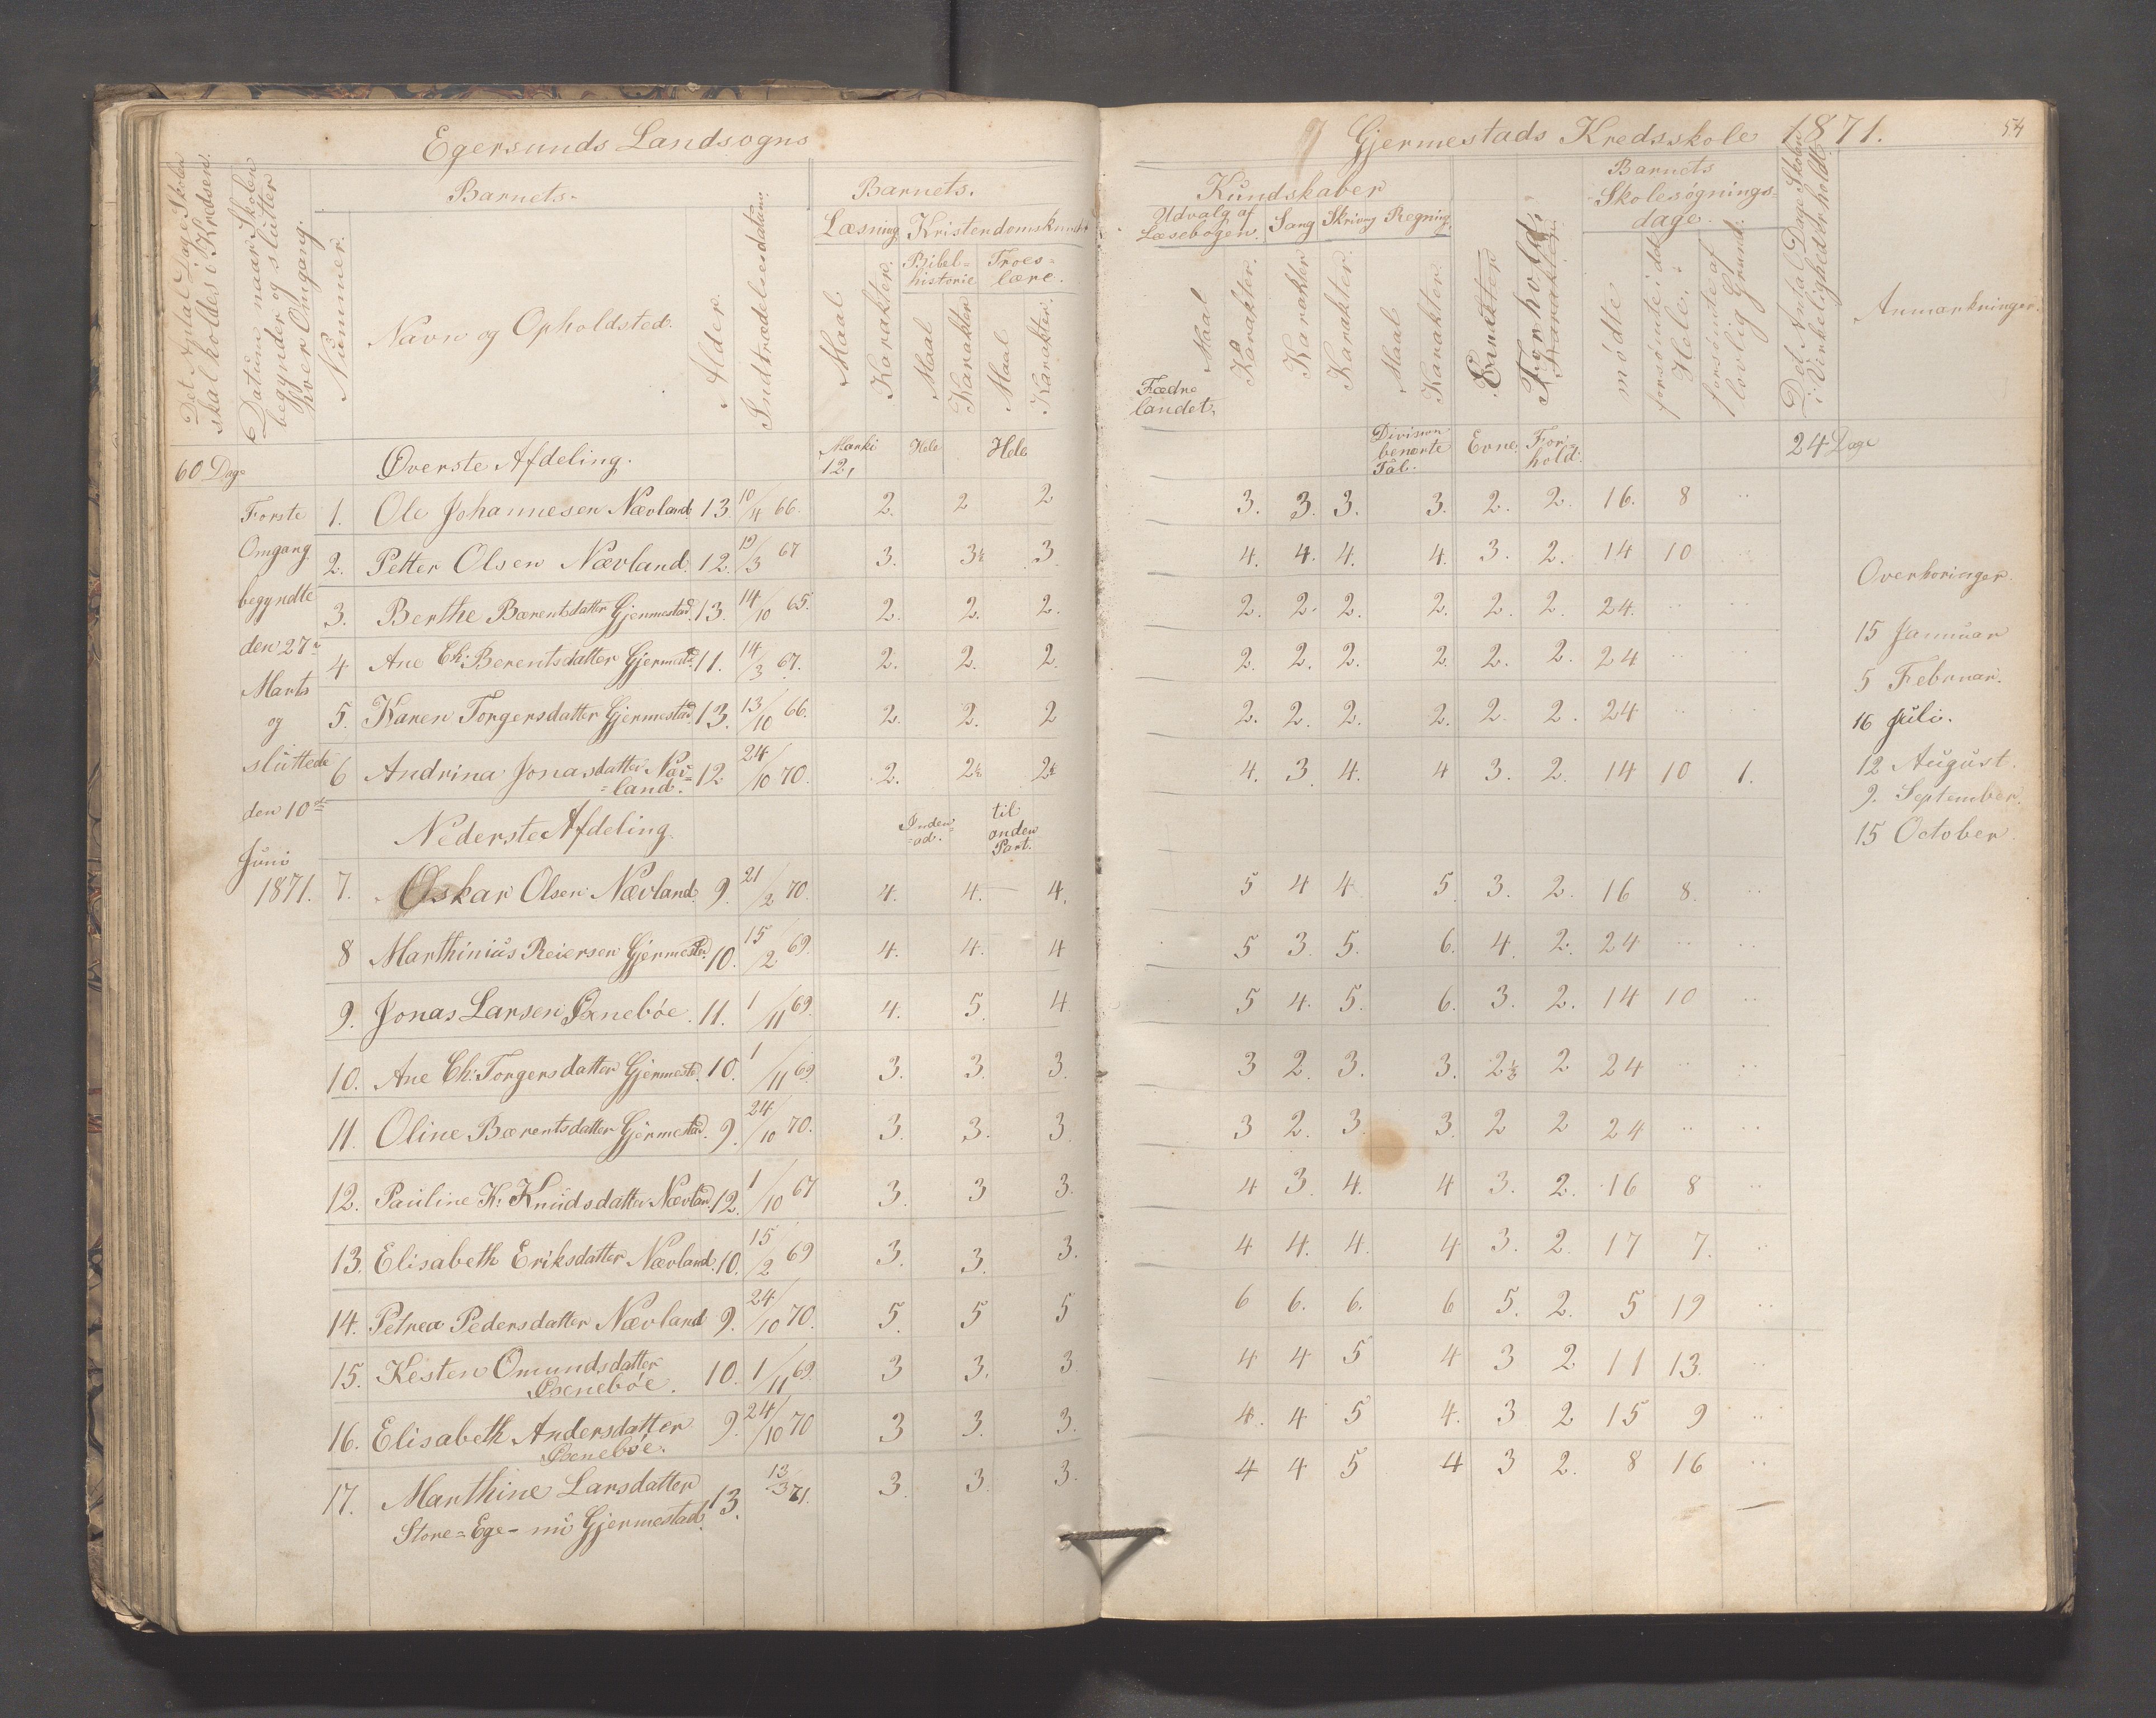 Egersunds Landsogns
Gjermestads Kredsskole 1871.
54
Det Antal Dage Skolen
skal holdes i Kredsen.
Datum naar Skolen
begynder og slutter
hver Omgang.
Barnets.
Nummer.
Navn og Opholdsted.
Alder.
Indtrædelsesdatum.
Barnets.
Læsning Kristendomskundsk
Bibel=
historie
Troes=
lære.
Maal
Karakter.
Maal
Karakter
Maal
Karakter.
Kundskaber
Udvalg af
Læsebogen.
Sang Skrivng Regning
Maal
Karakter.
Karakter
Karakter.
Maal
Karakter.
Evne
Forhold.
Barnets
Skolesøgnings=
dage.
mødte
forsømte i det
Hele.
forsømte af
lovlig Grund.
Det Antal Dage Skolen
i Virkelighed er holdt.
Anmærkninger.
Fædre
landet,
60 Dage
Øverste Afdeling.
12,
Hele
Hele
Division
benævnte
Tal.
Evne.
For=
hold.
24 Dage
Første
Omgang
begyndte
den 27
Marts
og
sluttede
den 10de
Juni
1871.
1. Ole Johannesen Nævland 13. 10/4 66. 2. 2 2 3. 3. 3. 3. 2. 2. 16. 8 ..
2. Petter Olsen Nævland. 12. 19/3 67 3. 3½ 3 4. 4. 4. 4. 3. 2. 14 10 ..
3. Berthe Bærentsdatter Gjermestad. 13. 14/10 65. 2. 2. 2. 2. 2. 2. 2. 2. 2. 24. .. ..
4 Ane Ch: Berentsdatter Gjermest 11. 14/3 67. 2. 2. 2. 2. 2. 2. 2. 2. 2. 24 .. ..
5. Karen Torgersdatter Gjermestad. 13. 13/10 66. 2. 2. 2 2. 2. 2. 2. 2. 2. 24 .. ..
6 Andrina Jonasdatter Næv=
=land. 12 24/10 70. 2. 2½ 2½ 4. 3. 4. 4 3. 2. 14 10 1.
Nederste Afdeling
Inden=
=ad.
til
anden
Part.
7. Oskar Olsen Nævland. 9. 21/2 70. 4. 4. 4. 5 4 4 5. 3. 2. 16 8. ..
8 Marthinius Reiersen Gjermestad. 10. 15/2 69. 4. 4. 4 5 3. 5. 6. 4. 2. 24 .. ..
9. Jonas Larsen Øxnebøe. 11. 1/11 69. 4. 5. 4 5 4. 5. 6. 3. 2. 14 10 ..
10. Ane Ch: Torgersdatter Gjermestd. 10. 1/11 69. 3. 3. 3. 3 2. 3. 3. 2½ 2 24 .. ..
11. Oline Bærentsdatter Gjermestad. 9. 24/10 70. 3. 3. 3 3 2. 3. 3. 2 2 24 .. ..
12. Pauline K. Knudsdatter Nævland. 12. 1/10 67 3. 3 3. 4 3. 4. 4 3. 2. 16 8 ..
13. Elisabeth Eriksdatter Nævland. 10. 15/2 69 3. 3. 3. 4 4. 4. 4 3. 2. 17 7. ..
14. Petrea Pedersdatter Nævland 9. 24/10 70. 5. 5 5 6 6. 6. 6 5. 2. 5 19 ..
15. Kesten Omundsdatter
Øxnebøe. 10. 1/11 69. 3 3. 3 4 4 5 4 3 2 11 13. ..
16. Elisabeth Andersdatter
Øxnebøe. 9. 24/10 70 3 3. 3. 4. 4 5 4. 3 2 15 9 ..
17. Marthine Larsdatter
Store=Ege- nu Gjermestad. 13. 13/3 71. 3. 3. 3. 4 4 5 4 3 2. 8 16 ..
Overhøringer.
15 Januar
5 Februar.
16 Juli.
12 August.
9. September.
15 October.